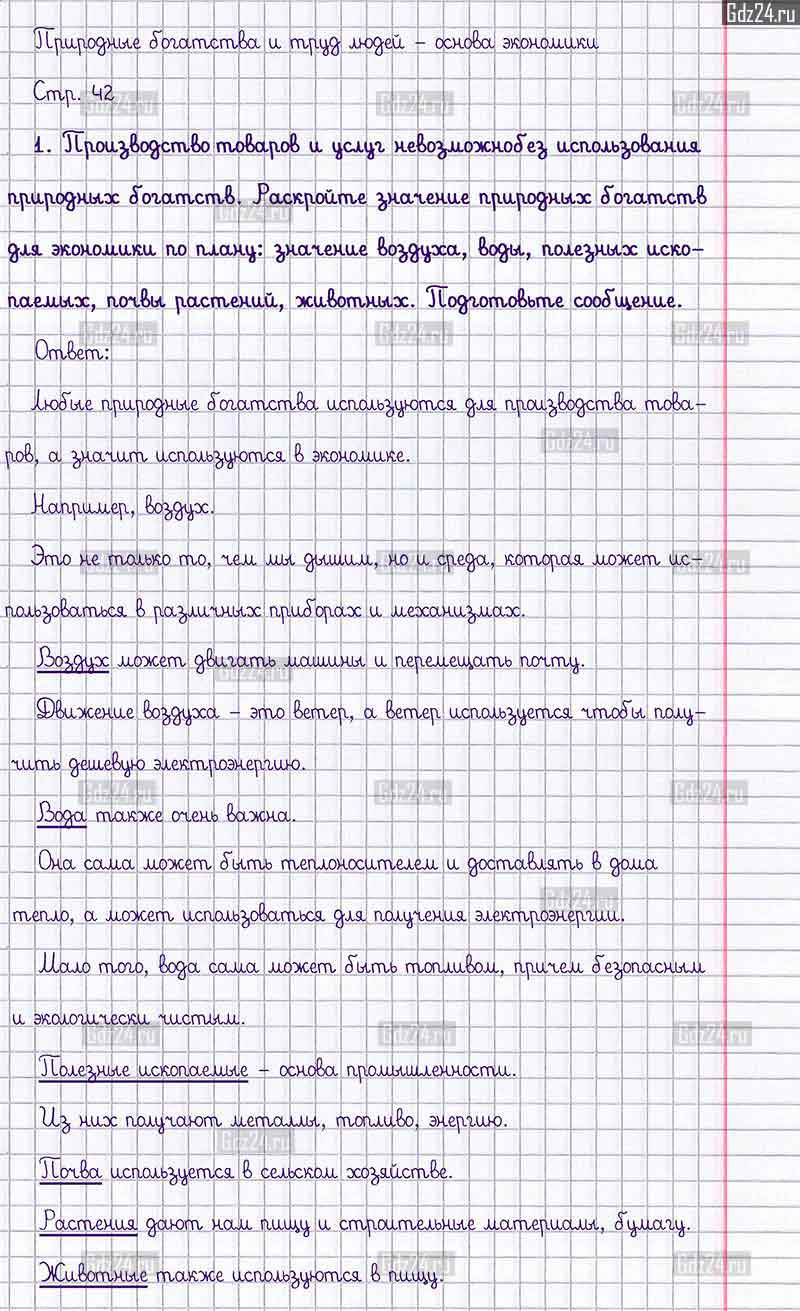 Gdz24.ru
Природные богатства и труд людей – основа экономики
Стр. 42
1. Производство товаров и услуг невозможнобез использования
природных богатств. Раскройте значение природных богатств
для экономики по плану: значение воздуха, воды, полезных иско-
паемых, почвы растений, животных. Подготовьте сообщение.
Ответ:
Любые природные богатства используются для производства това-
ров, а значит используются в экономике.
Например, воздух.
Это не только то, чем мы дышим, но и среда, которая может ис-
пользоваться в различных приборах и механизмах.
Воздух может двигать машины и перемещать почту.
Движение воздуха – это ветер, а ветер используется чтобы полу-
чить дешевую электроэнергию.
Вода также очень важна.
Она сама может быть теплоносителем и доставлять в дома
тепло, а может использоваться для получения электроэнергии.
Мало того, вода сама может быть топливом, причем безопасным
и экологически чистым.
Полезные ископаемые – основа промышленности.
Из них получают металлы, топливо, энергию.
Почва используется в сельском хозяйстве.
Растения дают нам пищу и строительные материалы, бумагу.
Животные также используются в пищу.